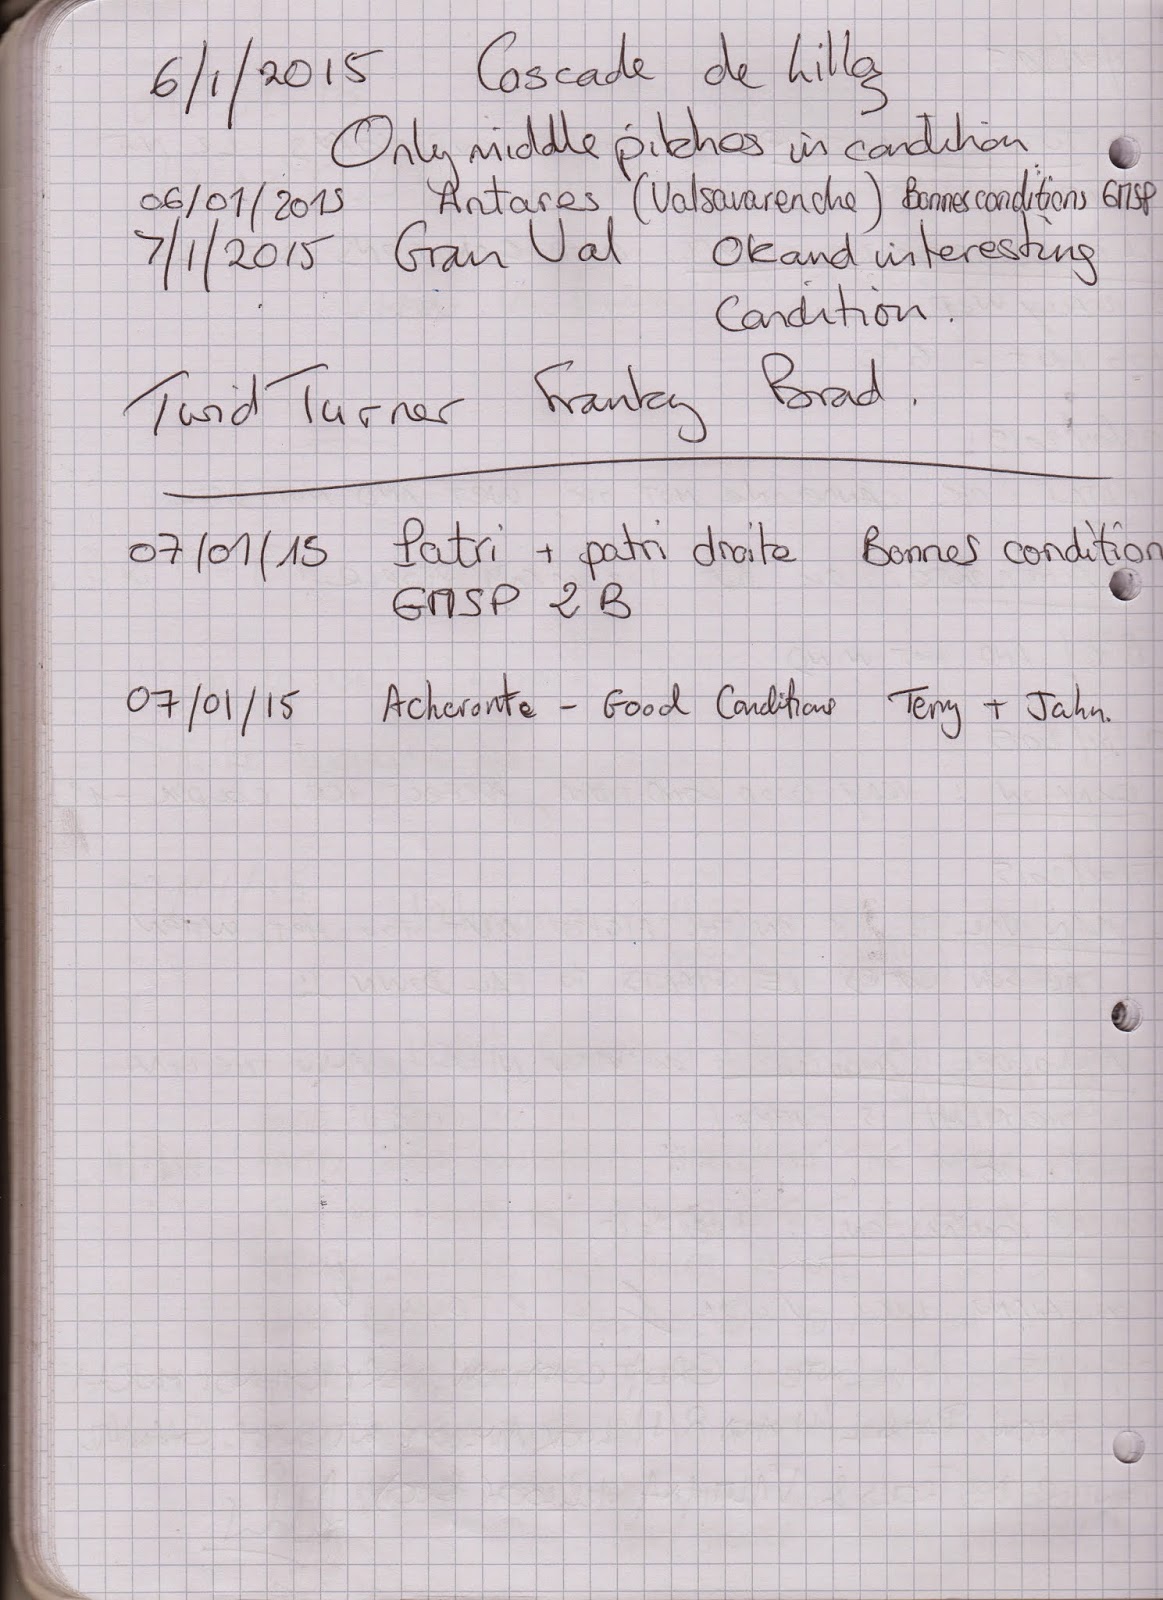 6/1/2015 Cascade de Lillaz
Only middle pitches in condition
06/01/2015 Antares (Valsavarenche) Bonnes conditions GMSP
7/1/2015 Gran Val Ok and interesting
Condition.
Twid Turner Franky Brad.
07/01/15 Patri + patri droite Bonnes condition
GMSP 2B
07/01/15 Acheronte - Good Conditions Terry + John.